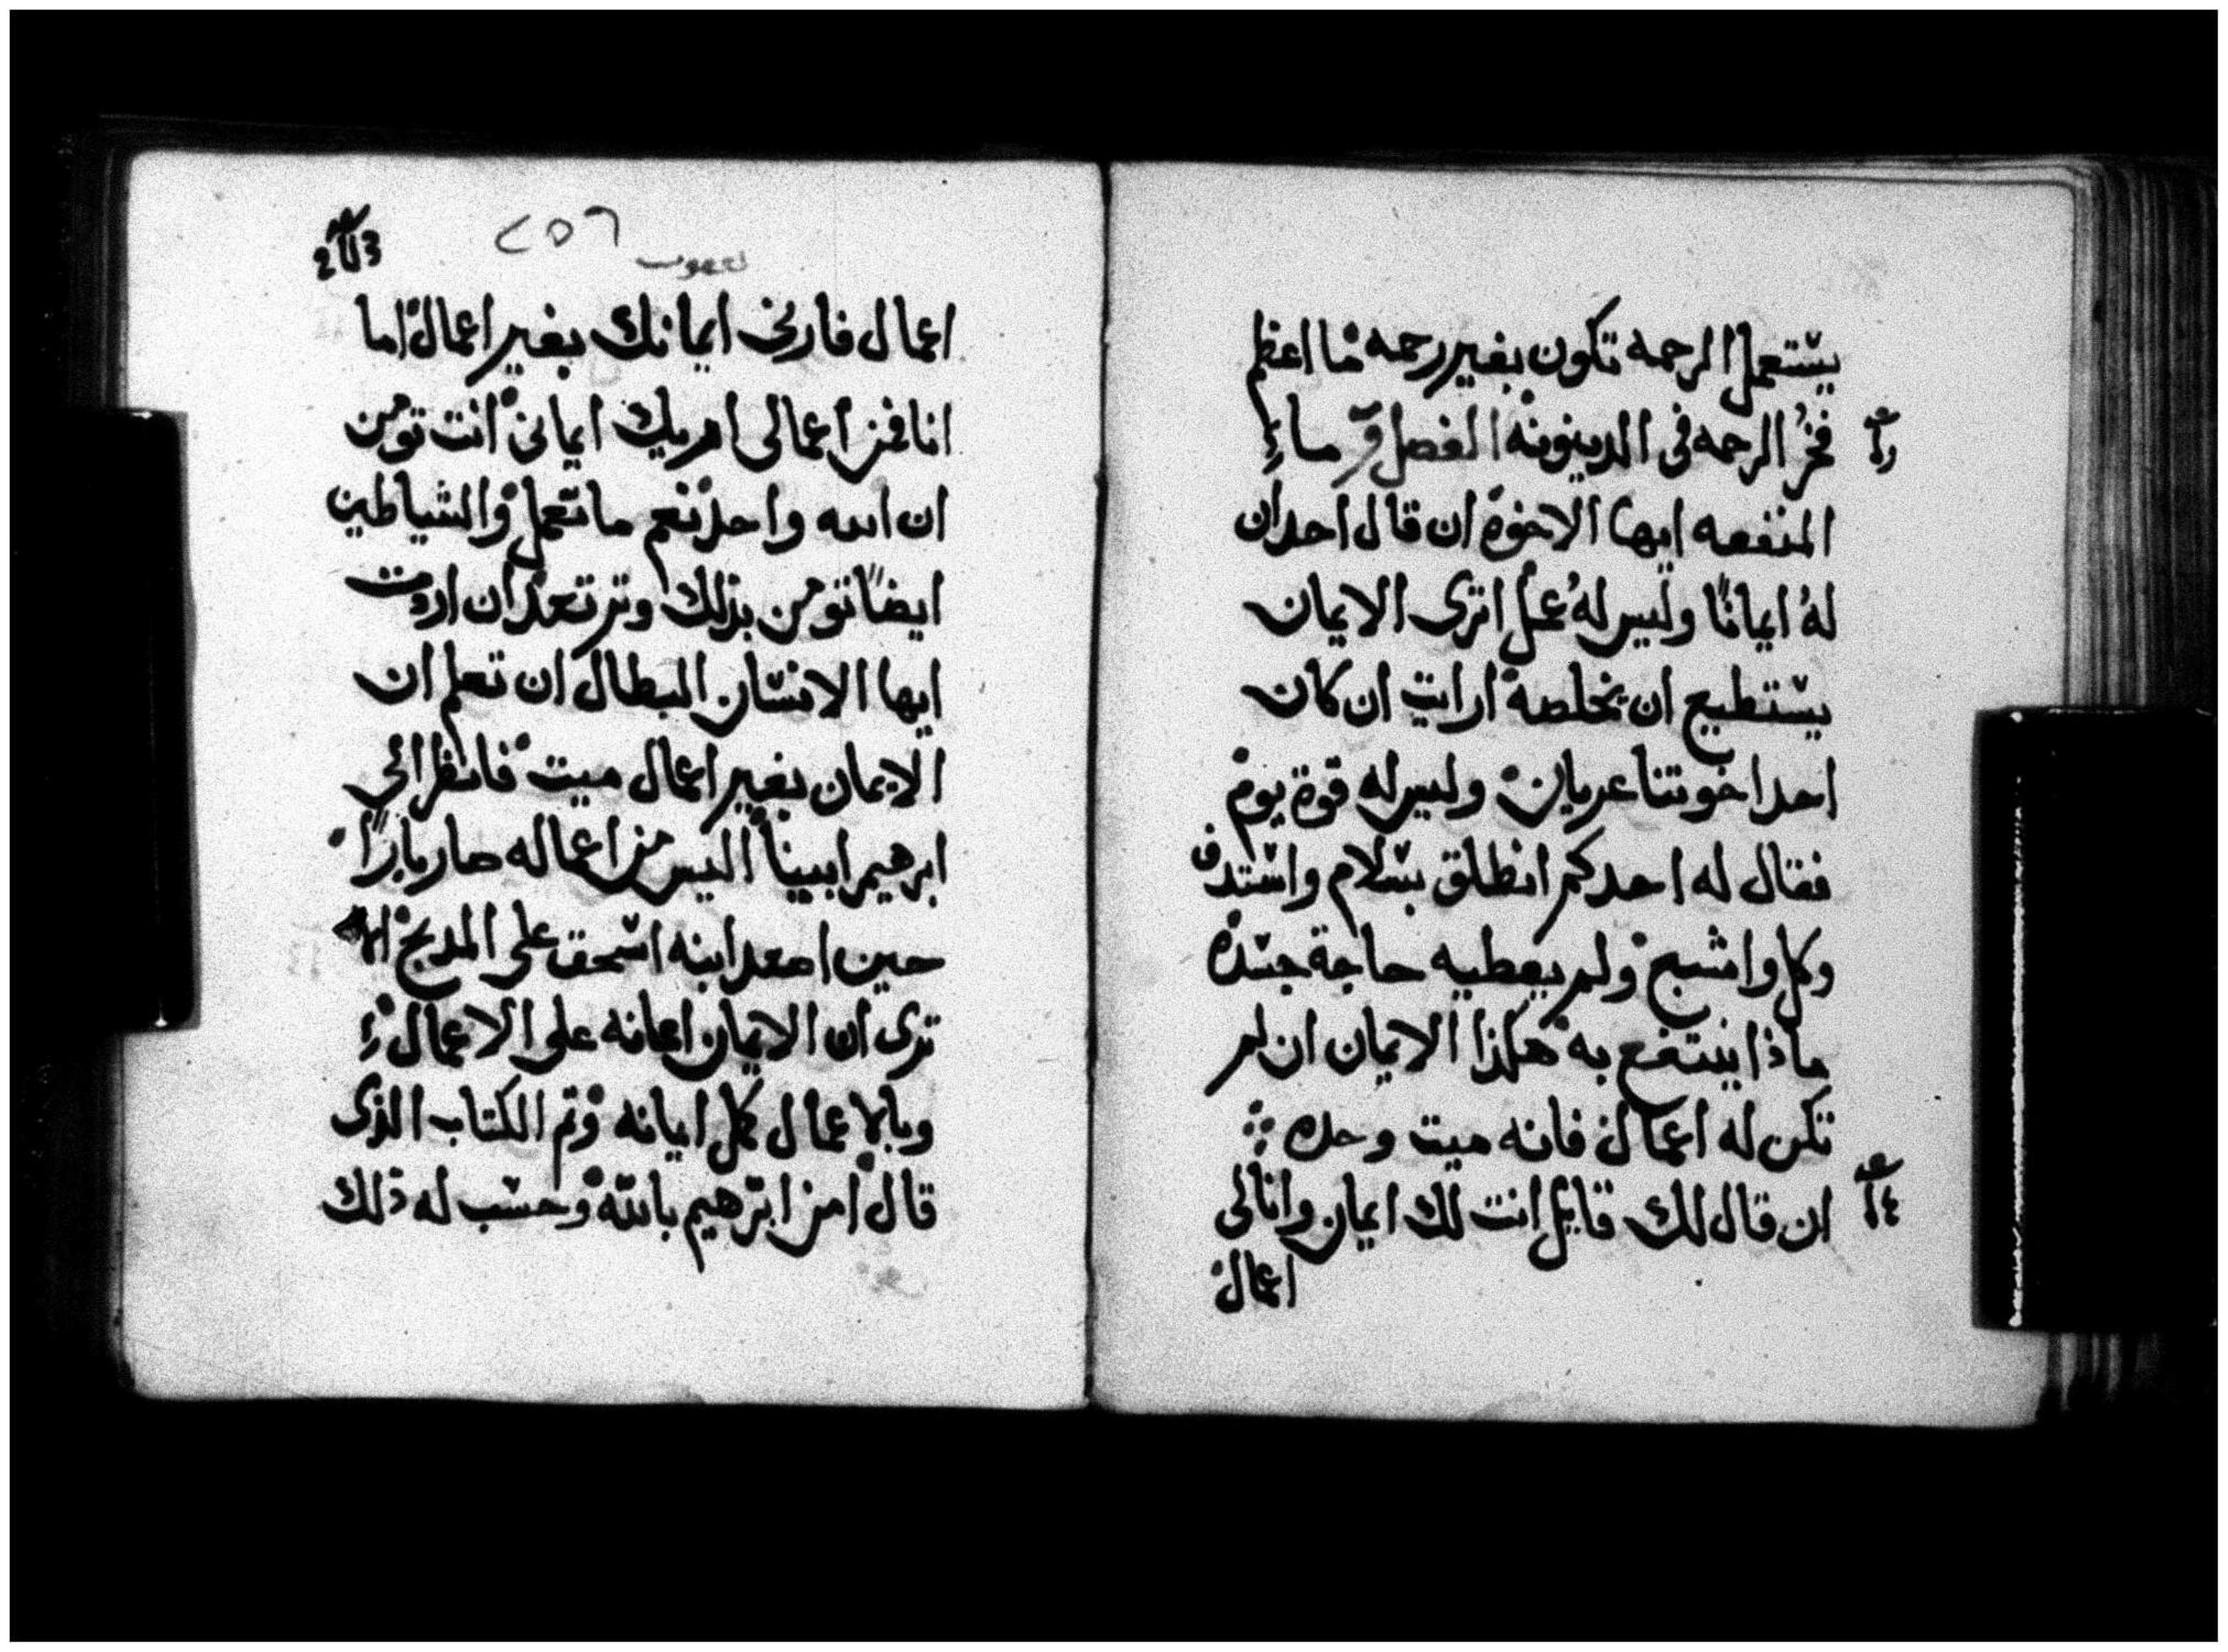 يستعمل الرحمه تكون بغير رحمه فما اعظم
فخر الرحمه فى الدينونه الفصل
المنفعه ايها الاخوة ان قال احد ان
لهُ ايمانًا وليس لهُ عمل اترى الايمان
يستطيع ان يخلصه ارايت ان كان
احد اخوتنا عريان وليس له قوة يوم
فقال له احدكم انطلق بسلام واستدف
وكل واشبع ولم يعطيه حاجة جسده
ماذا ينتفع به هكذا الايمان ان لم
تكن له اعمال فانه ميت وحده
ان قال لك قايل انت لك ايمان وانا لى
اعمال
٢٥٦
اعمال فارنى ايمانك بغير اعمال اما
انا فمن اعمالى اريك ايمانى انت تومن
ان الله واحد نعم ما تعمل والشياطين
ايضًا تومن بذلك وترتعد ان اردت
ايها الانسان البطال ان تعلم ان
الايمان بغير اعمال ميت فانظر الي
ابرهيم ابينا اليس من اعماله صار بارًا
حين اصعد ابنه اسحق على المدبح
ترى ان الايمان اعانه على الاعمال
وبالاعمال كمل ايمانه وتم الكتاب الذى
قال امن ابرهيم بالله وحسب له ذلك